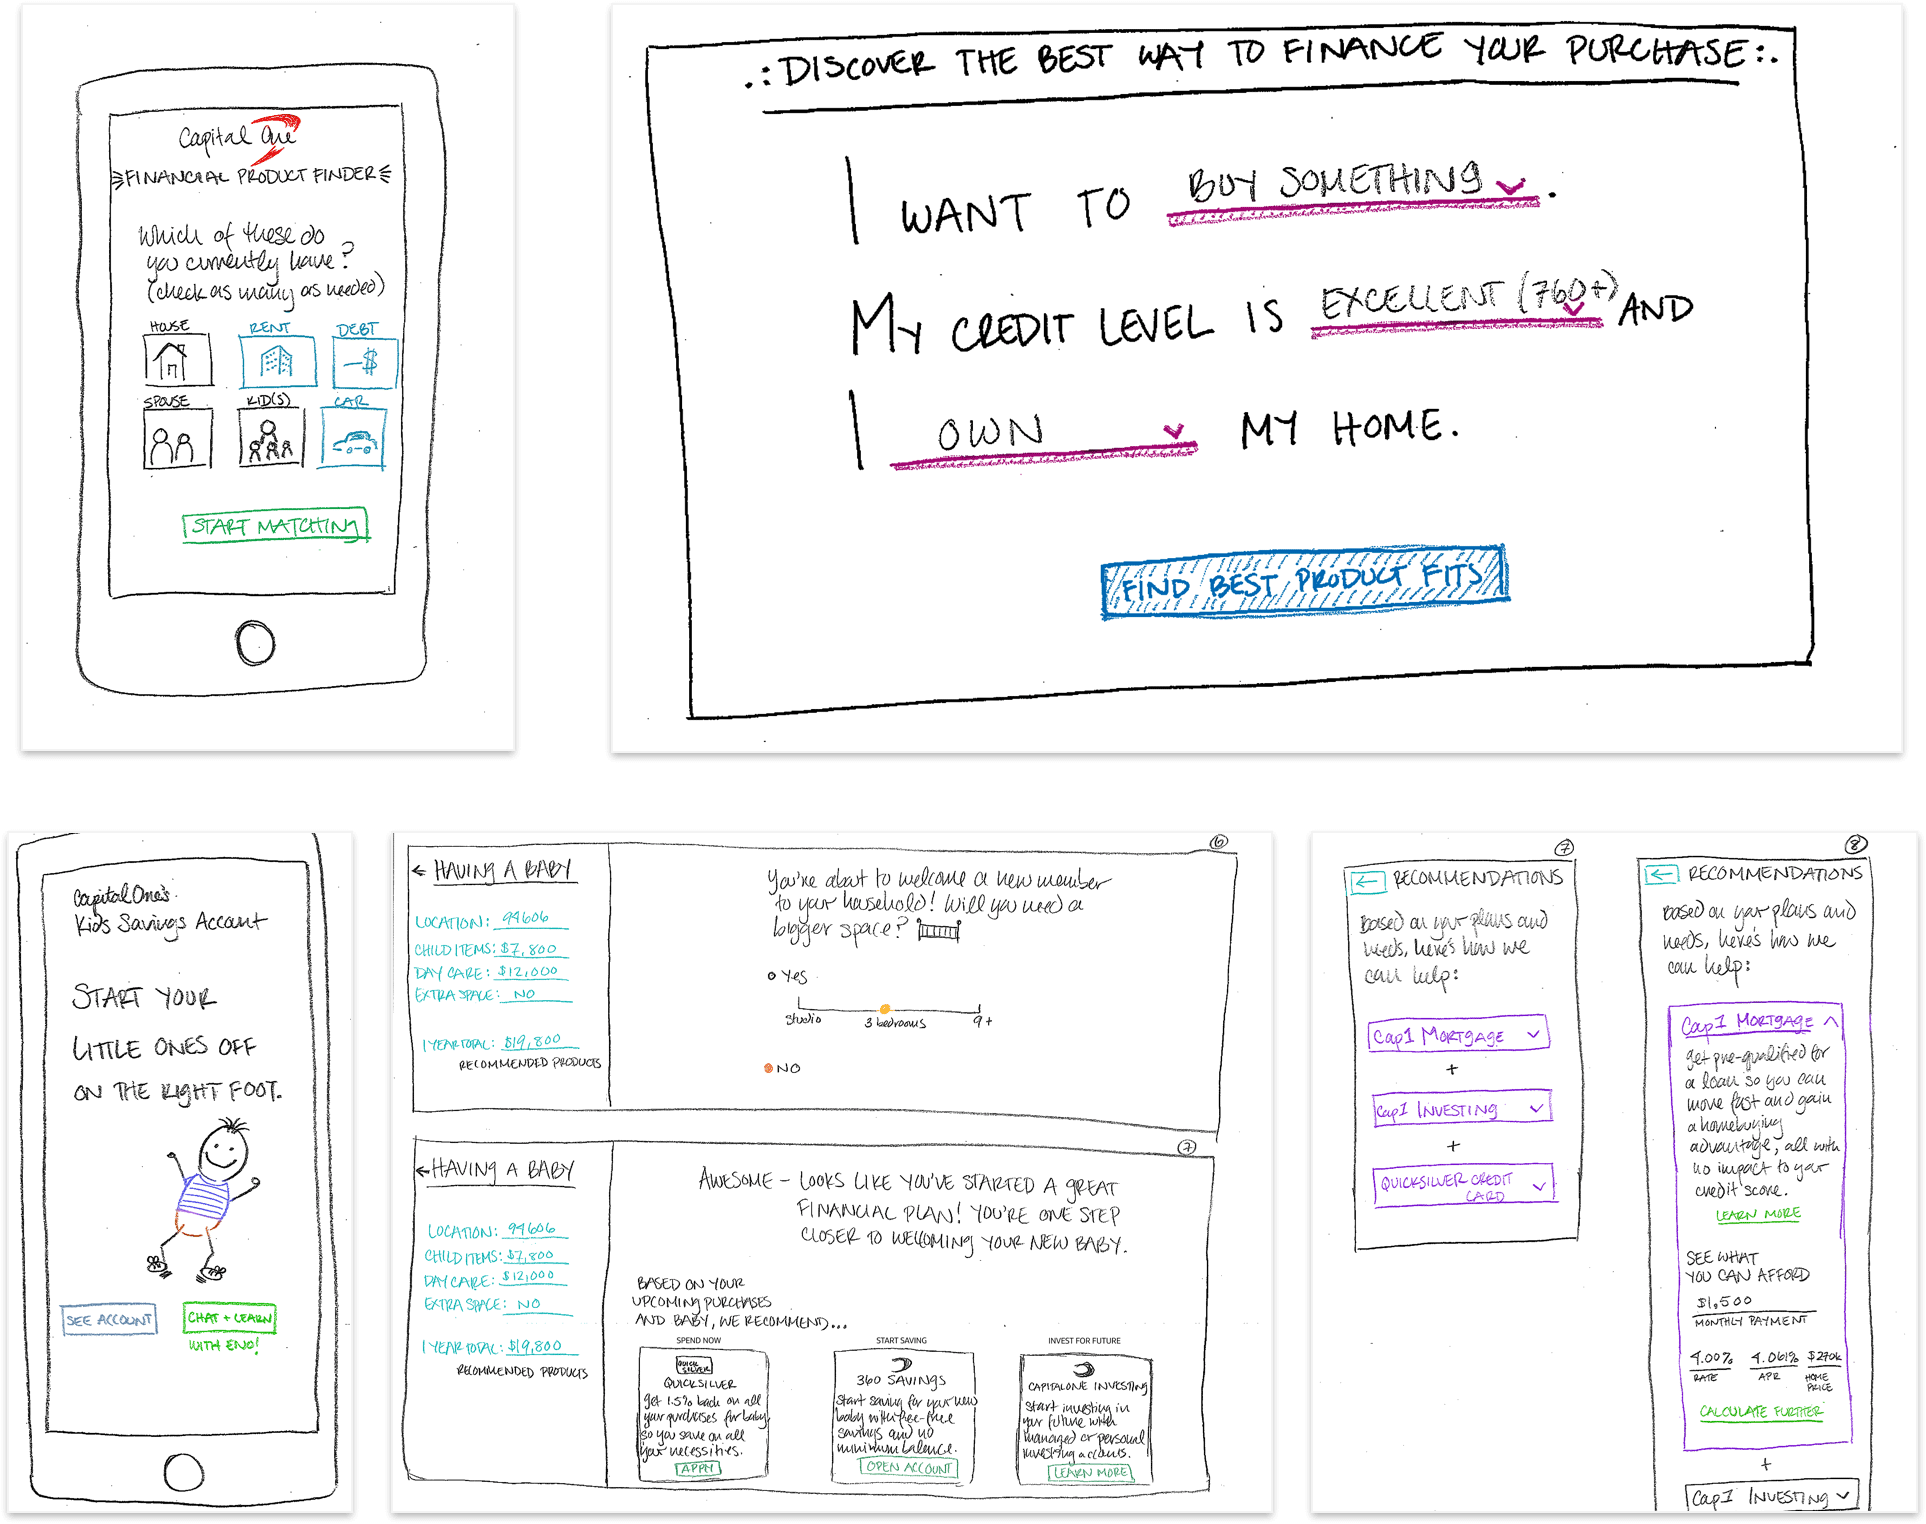 Capital One
FINANCIAL PRODUCT FINDER
Which of these do
you currently have?
(check as many as needed)
HOUSE RENT DEBT
-$
SPOUSE KID(S) CAR
START MATCHING
.:DISCOVER THE BEST WAY TO FINANCE YOUR PURCHASE:.
I WANT TO BUY SOMETHING.
MY CREDIT LEVEL IS EXCELLENT (760+) AND
I OWN MY HOME.
FIND BEST PRODUCT FITS
Capital One's
Kids Savings Account
START YOUR
LITTLE ONES OFF
ON THE RIGHT FOOT.
SEE ACCOUNT
CHAT + LEARN
WITH ENO!
6
← HAVING A BABY
LOCATION: 94606
CHILD ITEMS: $7,800
DAY CARE: $12,000
EXTRA SPACE: NO
1 YEAR TOTAL: $19,800
RECOMMENDED PRODUCTS
You're about to welcome a new member
to your household! Will you need a
bigger space?
Yes
studio 3 bedrooms 9+
NO
7
← HAVING A BABY
LOCATION: 94606
CHILD ITEMS: $7,800
DAY CARE: $12,000
EXTRA SPACE: NO
1 YEAR TOTAL: $19,800
RECOMMENDED PRODUCTS
AWESOME - LOOKS LIKE YOU'VE STARTED A GREAT
FINANCIAL PLAN! YOU'RE ONE STEP
CLOSER TO WELCOMING YOUR NEW BABY.
BASED ON YOUR
UPCOMING PURCHASES
AND BABY, WE RECOMMEND...
SPEND NOW
QUICK
SILVER
QUICKSILVER
Get 1.5% back on all
your purchases for baby
so you save on all
your necessities.
APPLY
START SAVING
360 SAVINGS
Start saving for your new
baby with fee-free
savings and no
minimum balance.
OPEN ACCOUNT
INVEST FOR FUTURE
CAPITALONE INVESTING
Start investing in
your future with
managed or personal
investing accounts.
LEARN MORE
7
← RECOMMENDATIONS
Based on your plans and
needs, here's how we
can help:
Cap1 MORTGAGE
+
Cap1 INVESTING
+
QUICKSILVER CREDIT
CARD
8
← RECOMMENDATIONS
Based on your plans and
needs, here's how we
can help:
Cap1 MORTGAGE
get pre-qualified for
a loan so you can
move fast and gain
a homebuying
advantage, all with
no impact to your
credit score.
LEARN MORE
SEE WHAT
YOU CAN AFFORD
$1,500
MONTHLY PAYMENT
4.00% 4.061% $270k
RATE APR HOME
PRICE
CALCULATE FURTHER
+
Cap1 INVESTING